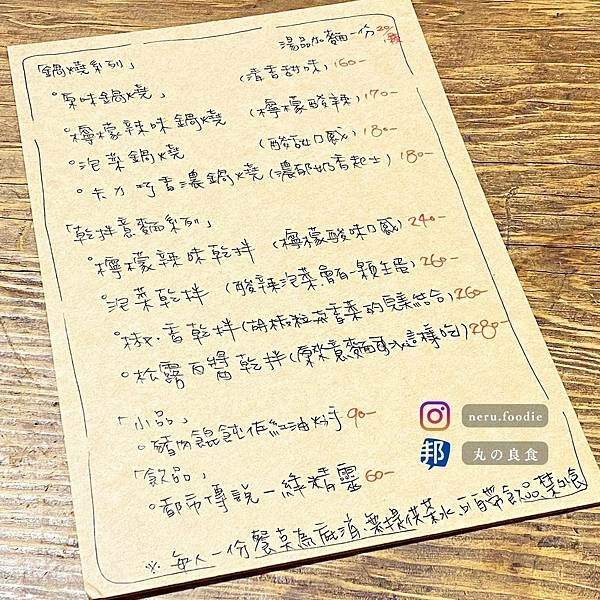 湯品加麵一份20
「鍋燒系列」
°原味鍋燒 (清香甜味) 160-
°檸檬辣味鍋燒 (檸檬酸辣) 170-
°泡菜鍋燒 (酸甜口感) 180-
°卡力巧香濃鍋燒 (濃郁奶香起士) 180-
「乾拌意麵系列」
°檸檬辣味乾拌 (檸檬酸味口感) 240-
°泡菜乾拌 (酸辣泡菜會有一顆生蛋) 260-
°椒香乾拌 (胡椒粒與香菜的完美結合) 260-
°松露百醬乾拌 (原來意麵可以這樣吃) 280-
「小品」
°豬肉餛飩佐紅油炒手 90-
「飲品」
°都市傳說-綠精靈 60-
※每人一份餐點為低消.無提供茶水 可自帶飲品
neru.foodie
邦 丸の良食